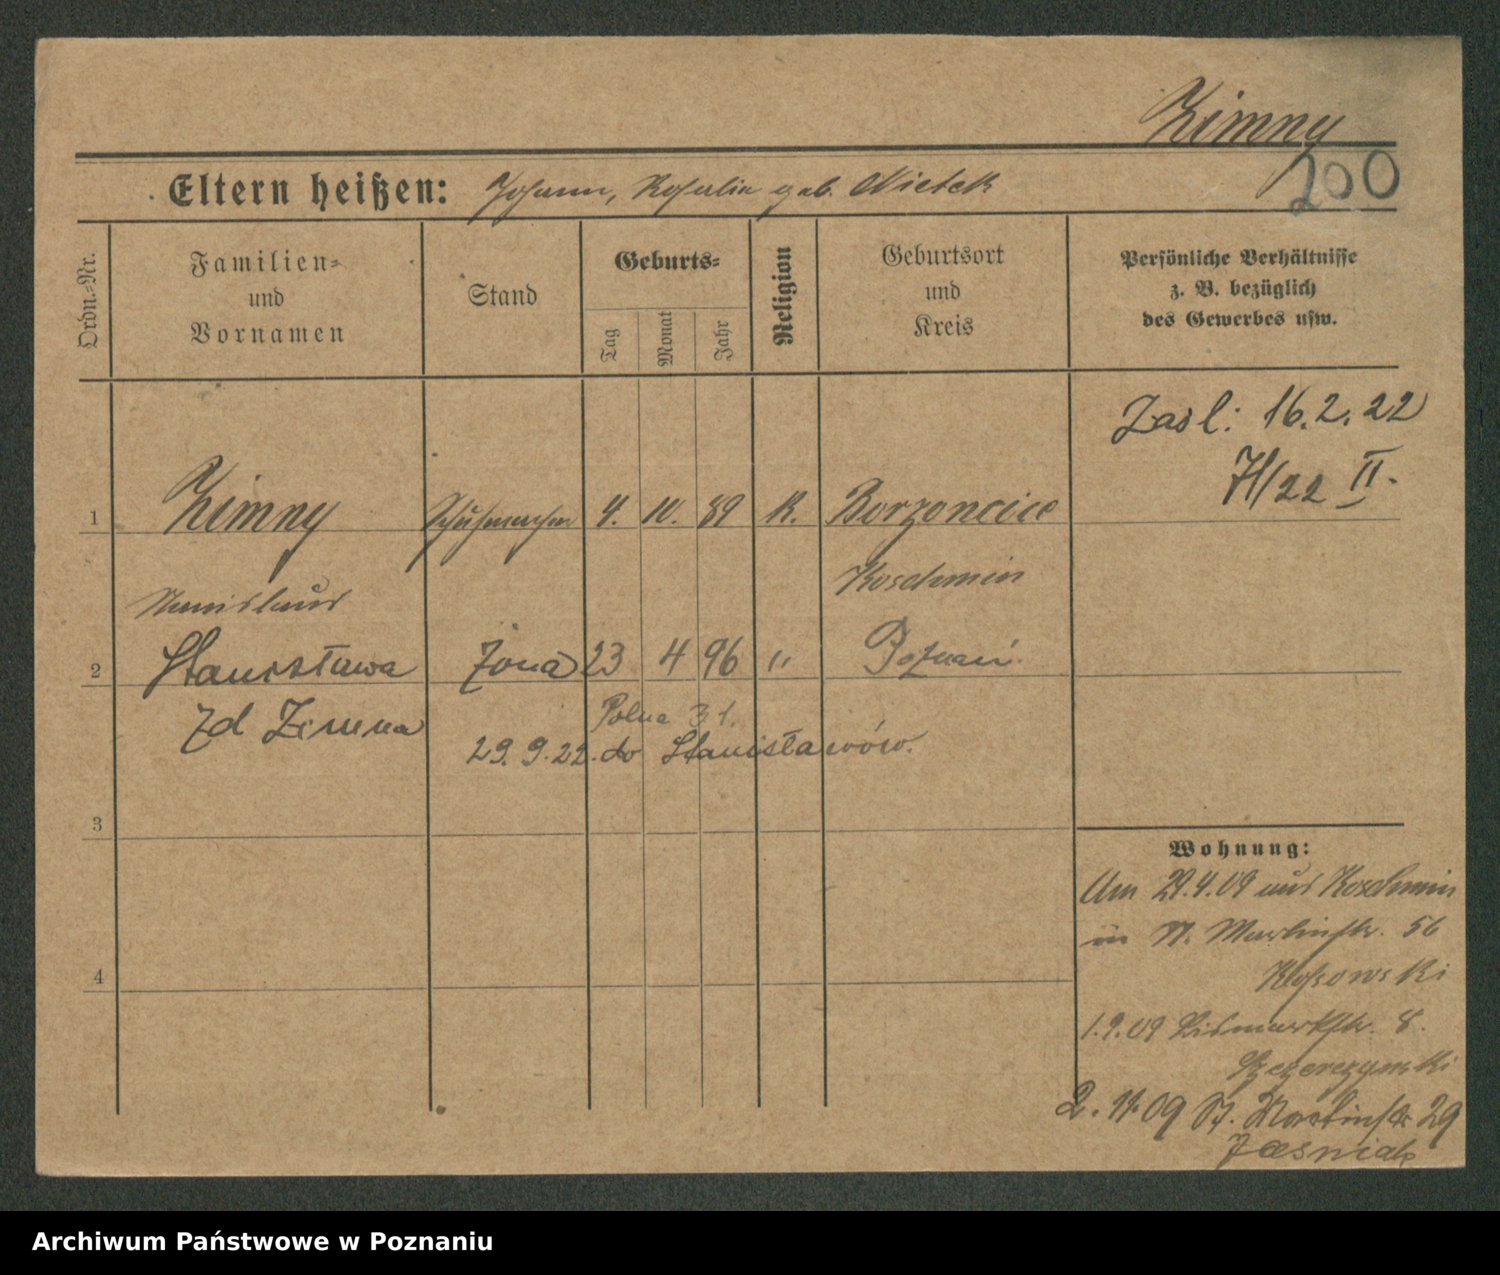 Zimny
200
Eltern heißen: Johann, Rosalia geb. Wietek
Ordn.-Nr.
Familien-
und
Vornamen
Stand
Geburts-
Tag
Monat
Jahr
Religion
Geburtsort
und
Kreis
Persönliche Verhältnisse
z. B. bezüglich
des Gewerbes usw.
Zasl: 16.2.22
/22 II.
1 Zimny Schuhmacher 4. 10. 89 K. Borzoncice
Stanislaus Koschmin
2 Stanisława Żona 23 4 96 " Poznań.
zd Zimna
Polna 31.
29.9.22. do Stanisławów.
3
4
Wohnung:
Am 29.4.09 aus Koschmin
in St. Martinstr. 56
Kossowski
1.9.09 Bismarckstr. 8.
2.11.09 St. Martinstr 29
Jaesniak
Archiwum Państwowe w Poznaniu